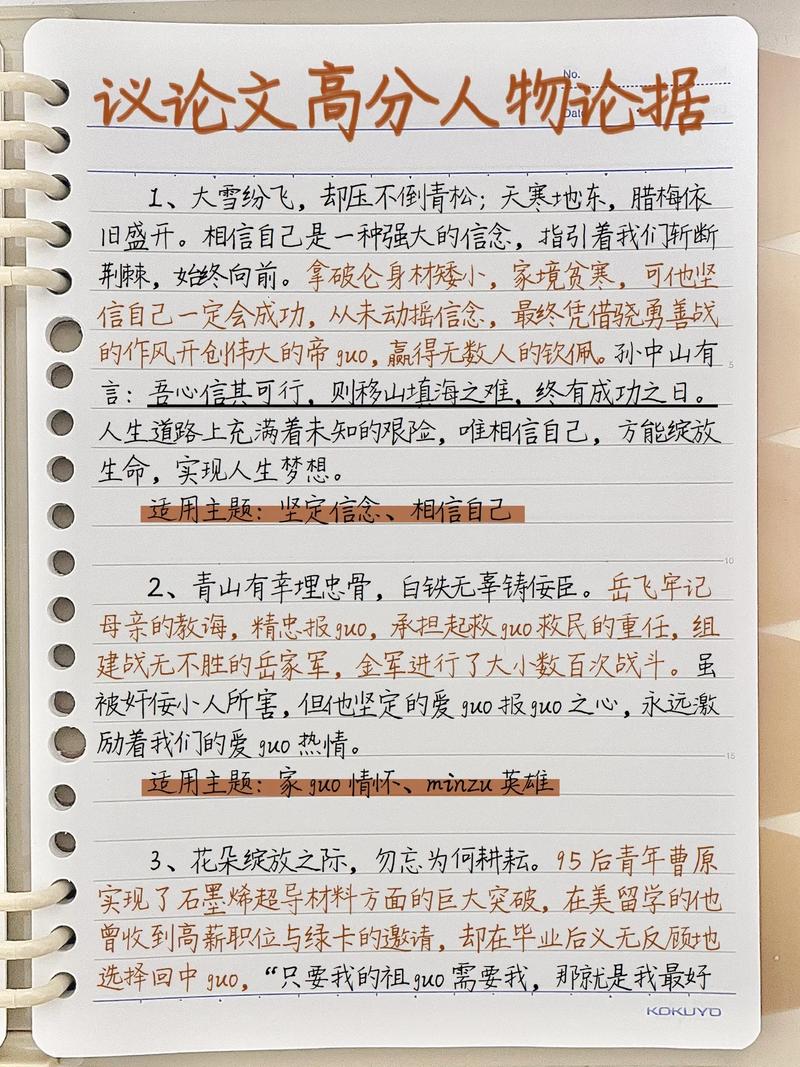 No.
Date
议论文高分人物论据
1、大雪纷飞，却压不倒青松；天寒地东，腊梅依
旧盛开。相信自己是一种强大的信念，指引着我们斩断
荆棘，始终向前。拿破仑身材矮小，家境贫寒，可他坚
信自己一定会成功，从未动摇信念，最终凭借骁勇善战
的作风开创伟大的帝guo，赢得无数人的钦佩。孙中山有
言：吾心信其可行，则移山填海之难，终有成功之日。
人生道路上充满着未知的艰险，唯相信自己，方能绽放
生命，实现人生梦想。
适用主题：坚定信念、相信自己
2、青山有幸埋忠骨，白铁无辜铸佞臣。岳飞牢记
母亲的教诲，精忠报guo，承担起救guo救民的重任，组
建战无不胜的岳家军，金军进行了大小数百次战斗。虽
被奸佞小人所害，但他坚定的爱guo报guo之心，永远激
励着我们的爱guo热情。
适用主题：家guo情怀、minzu英雄
3、花朵绽放之际，勿忘为何耕耘。95后青年曹原
实现了石墨烯超导材料方面的巨大突破，在美留学的他
曾收到高薪职位与绿卡的邀请，却在毕业后义无反顾地
选择回中guo，“只要我的祖guo需要我，那就是我最好
5
10
15
KOKUYO